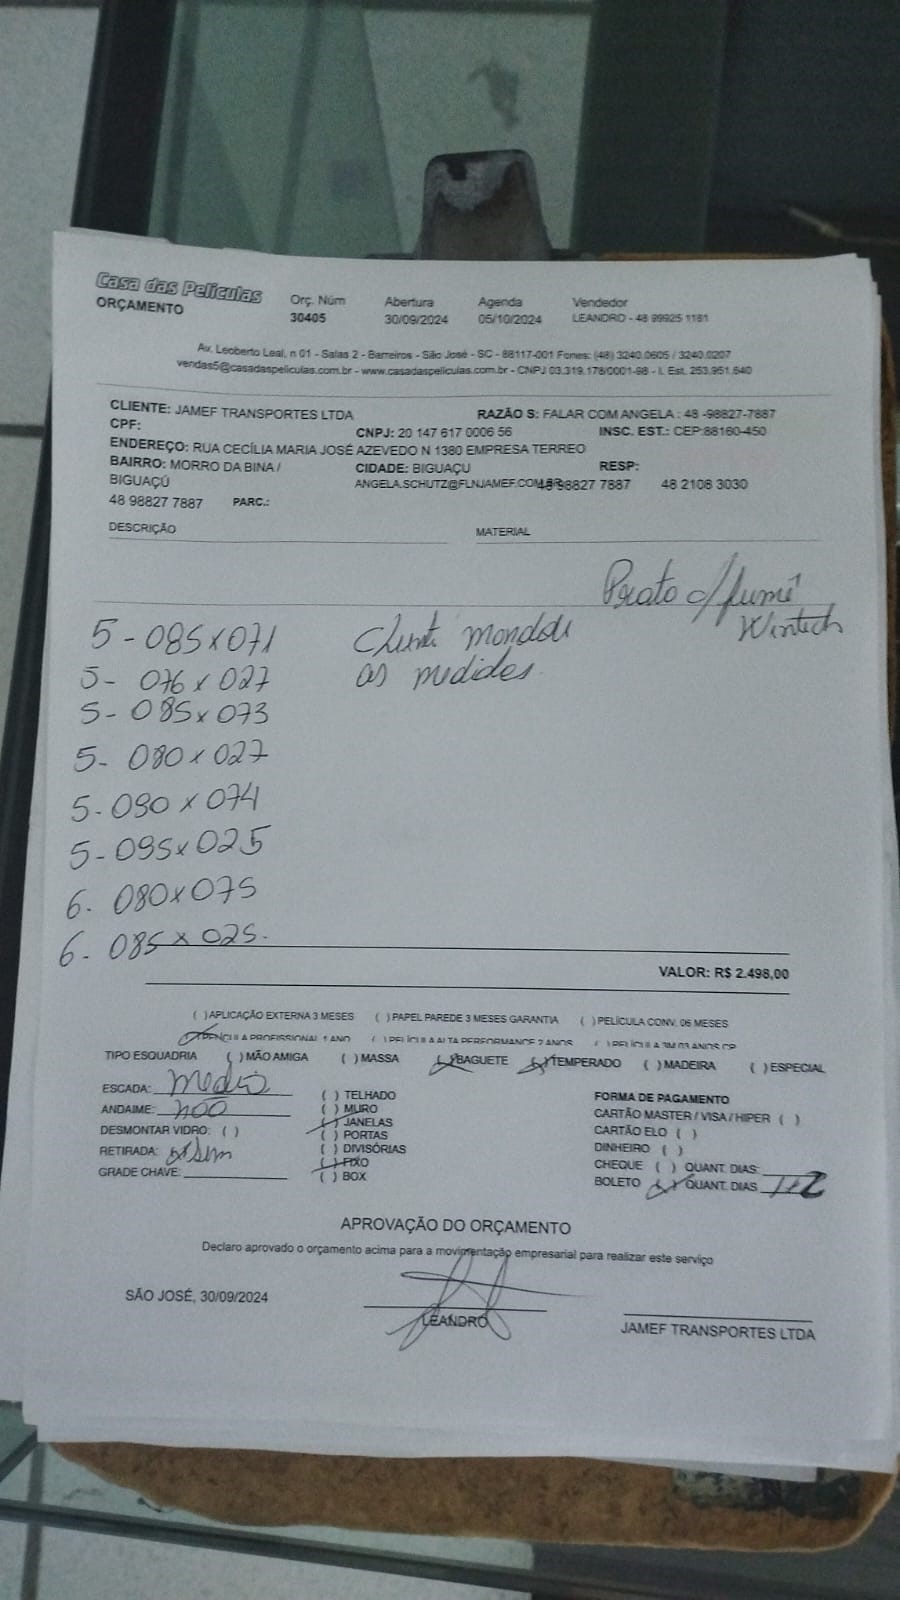 Casa das Películas
ORÇAMENTO
Orç. Núm Abertura Agenda Vendedor
30405 30/09/2024 05/10/2024 LEANDRO - 48 99925 1181
Av. Leoberto Leal, n 01 - Salas 2 - Barreiros - São José - SC - 88117-001 Fones: (48) 3240.0605 / 3240.0207
vendas5@casadaspeliculas.com.br - www.casadaspeliculas.com.br - CNPJ 03.319.178/0001-98 - I. Est. 253.951.640
CLIENTE: JAMEF TRANSPORTES LTDA RAZÃO S: FALAR COM ANGELA : 48 -98827-7887
CPF: CNPJ: 20 147 617 0006 56 INSC. EST.: CEP:88160-450
ENDEREÇO: RUA CECÍLIA MARIA JOSÉ AZEVEDO N 1380 EMPRESA TERREO
BAIRRO: MORRO DA BINA / CIDADE: BIGUAÇU RESP:
BIGUAÇÚ ANGELA.SCHUTZ@FLNJAMEF.COM.BR 48 98827 7887 48 2108 3030
48 98827 7887 PARC.:
DESCRIÇÃO MATERIAL
Prato c/ fumê
Wintech
5 - 085 x 071 Client mandou
5 - 076 x 027 as medidas
5 - 085 x 073
5 - 080 x 027
5 - 080 x 074
5 - 095 x 025
6 - 080 x 075
6 - 085 x 025
VALOR: R$ 2.498,00
( ) APLICAÇÃO EXTERNA 3 MESES ( ) PAPEL PAREDE 3 MESES GARANTIA ( ) PELÍCULA CONV. 06 MESES
( ) PELÍCULA PROFISSIONAL 1 ANO ( ) PELÍCULA ALTA PERFORMANCE 2 ANOS ( ) PELÍCULA 3M 03 ANOS CP
TIPO ESQUADRIA ( ) MÃO AMIGA ( ) MASSA (X) BAGUETE (X) TEMPERADO ( ) MADEIRA ( ) ESPECIAL
ESCADA: Media ( ) TELHADO FORMA DE PAGAMENTO
ANDAIME: não ( ) MURO CARTÃO MASTER / VISA / HIPER ( )
DESMONTAR VIDRO: ( ) (X) JANELAS CARTÃO ELO ( )
( ) PORTAS
RETIRADA: Sim ( ) DIVISÓRIAS DINHEIRO ( )
(X) FIXO CHEQUE ( ) QUANT. DIAS:
GRADE CHAVE: ( ) BOX BOLETO (X) QUANT. DIAS
APROVAÇÃO DO ORÇAMENTO
Declaro aprovado o orçamento acima para a movimentação empresarial para realizar este serviço
SÃO JOSÉ, 30/09/2024
LEANDRO JAMEF TRANSPORTES LTDA